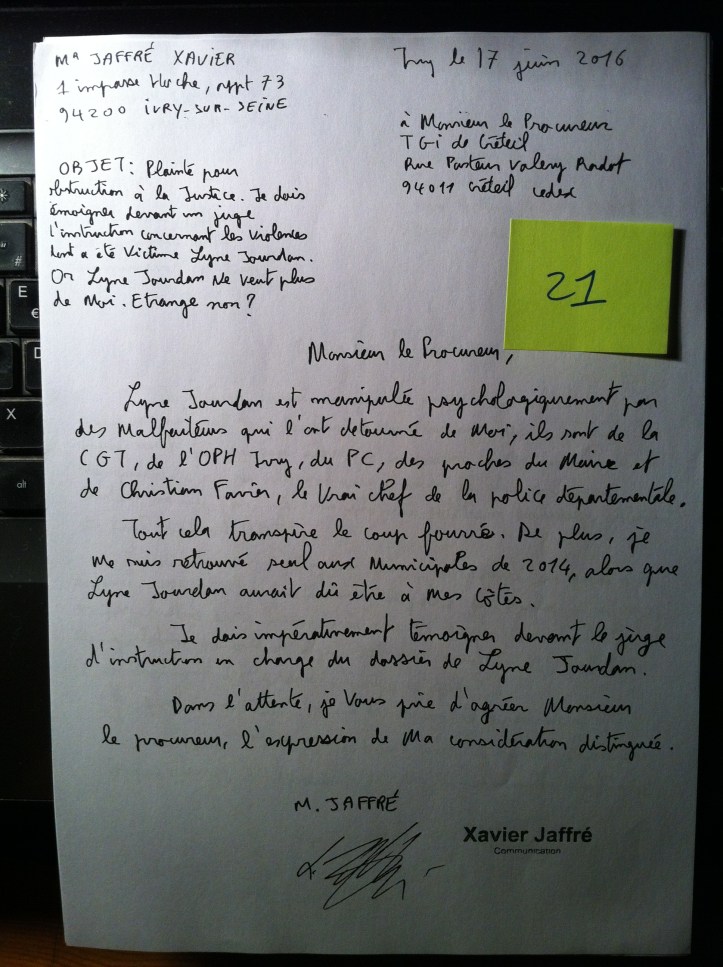 Mr JAFFRÉ XAVIER
1 impasse Hoche, appt 73
94200 IVRY-SUR-SEINE
Ivry le 17 juin 2016
à Monsieur le Procureur
TGI de Créteil
Rue Pasteur Valery Radot
94011 Créteil cedex
OBJET: Plainte pour
obstruction à la Justice. Je dois
témoigner devant un juge
d'instruction concernant les violences
dont a été victime Lyne Jourdan.
Or Lyne Jourdan ne veut plus
de Moi. Etrange non?
21
Monsieur le Procureur,
Lyne Jourdan est manipulée psychologiquement par
des Malfaiteurs qui l'ont detournée de Moi, ils sont de la
CGT, de l'OPH Ivry, du PC, des proches du Maire et
de Christian Favier, le vrai chef de la police départementale.
Tout cela transpire le coup fourré. De plus, je
me suis retrouvé seul aux Municipales de 2014, alors que
Lyne Jourdan aurait dû être à mes côtés.
Je dois impérativement témoigner devant le juge
d'instruction en charge du dossier de Lyne Jourdan.
Dans l'attente, je vous prie d'agréer Monsieur
le procureur, l'expression de Ma considération distinguée.
M. JAFFRÉ
Xavier Jaffré
Communication